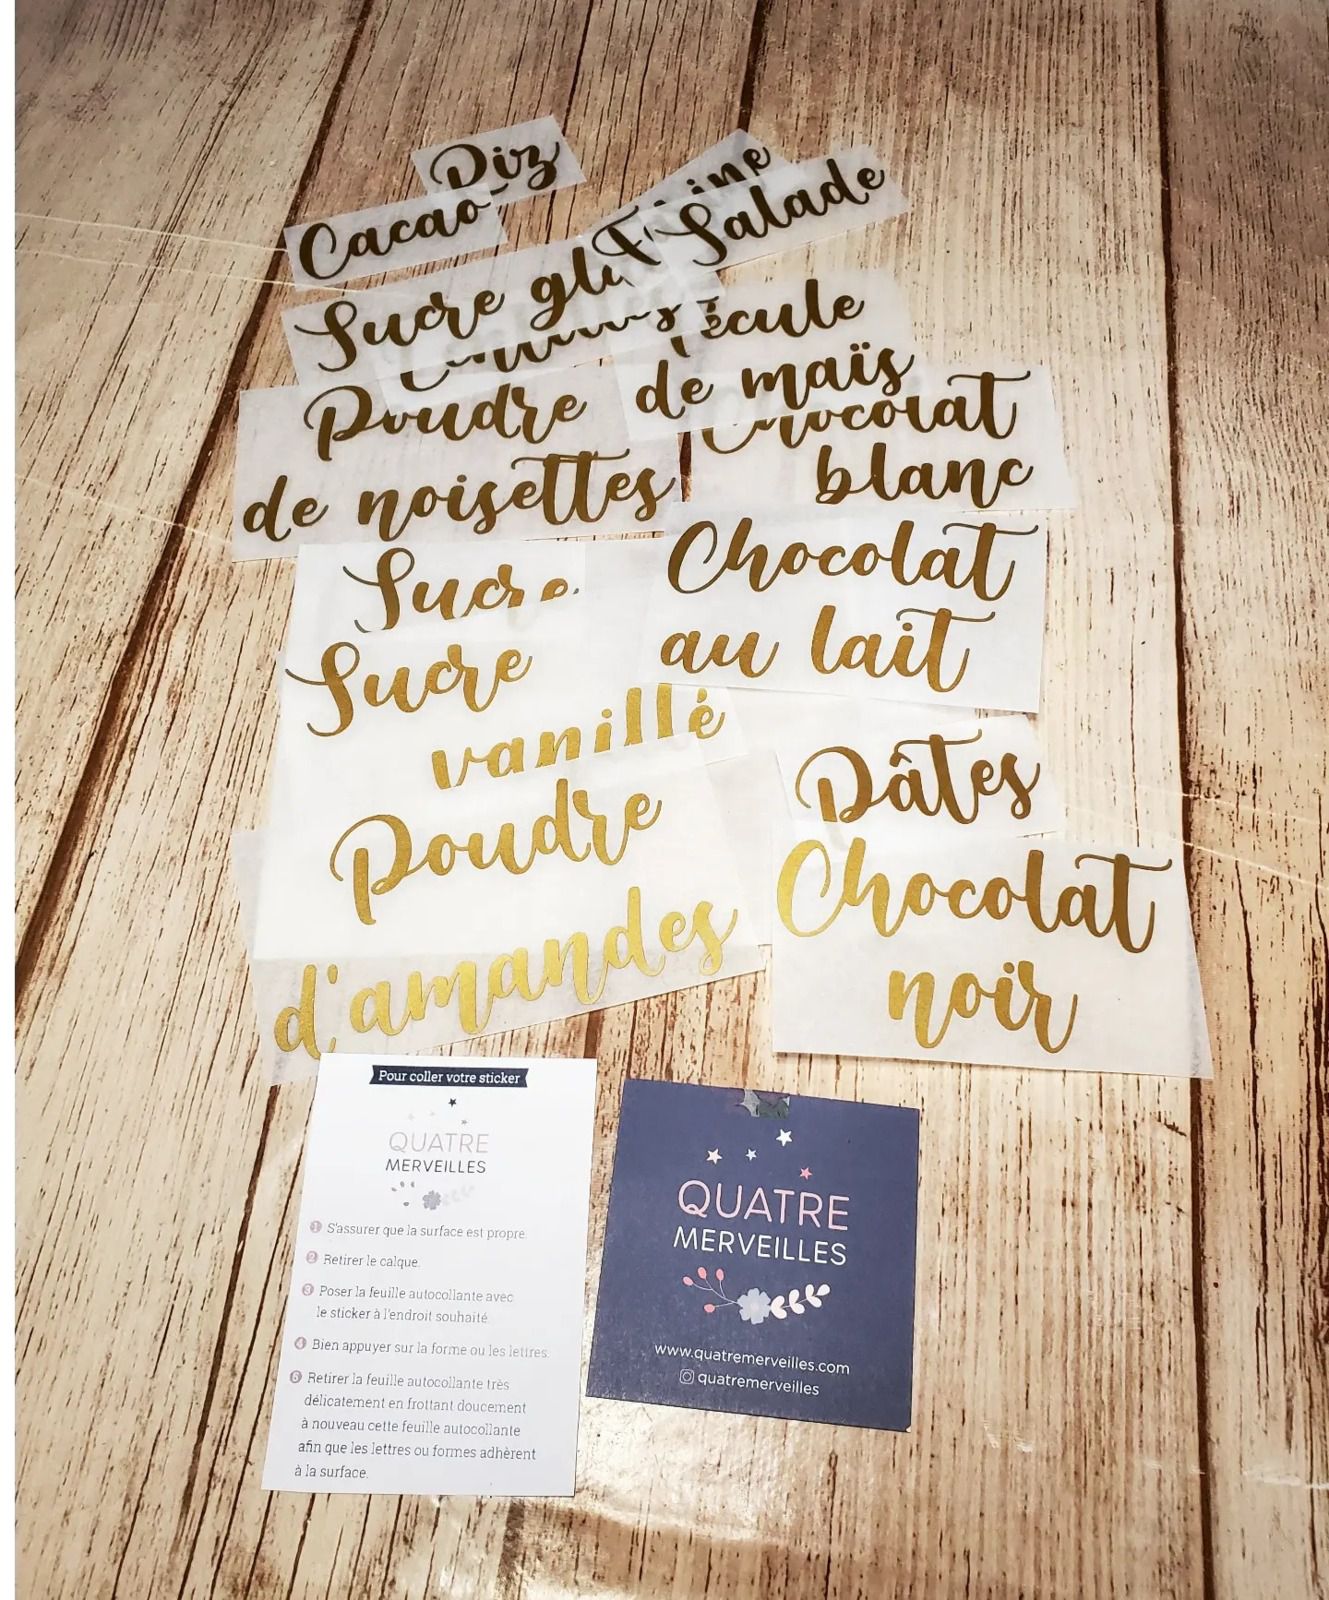 Riz
Cacao
Salade
Sucre
de maïs
Poudre
de noisettes
Chocolat
blanc
Sucre
Chocolat
au lait
Sucre
vanillé
Pâtes
Poudre
d'amandes
Chocolat
noir
Pour coller votre sticker
QUATRE
MERVEILLES
1 S'assurer que la surface est propre.
2 Retirer le calque.
3 Poser la feuille autocollante avec
le sticker à l'endroit souhaité.
4 Bien appuyer sur la forme ou les lettres.
5 Retirer la feuille autocollante très
délicatement en frottant doucement
à nouveau cette feuille autocollante
afin que les lettres ou formes adhèrent
à la surface.
QUATRE
MERVEILLES
www.quatremerveilles.com
quatremerveilles